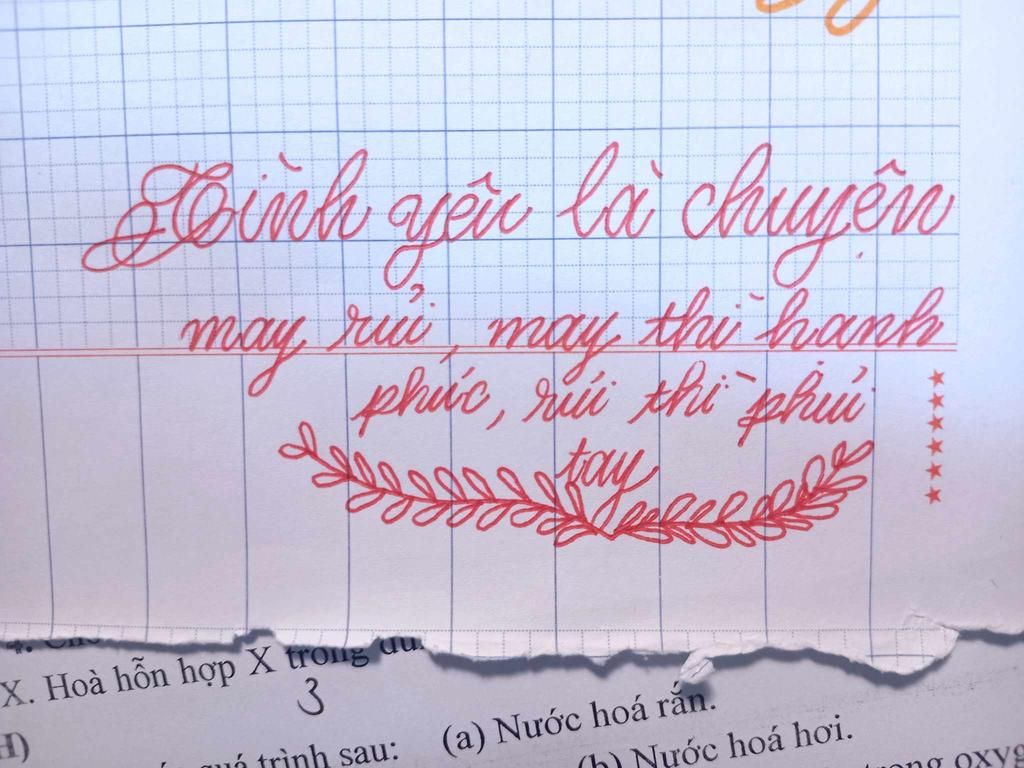 Tình yêu là chuyện
may rủi, may thì hạnh
phúc, rủi thì phủi
tay
X. Hoà hỗn hợp X trong du
3
(a) Nước hoá rắn.
H)
quá trình sau:
(b) Nước hoá hơi.
trong oxyg